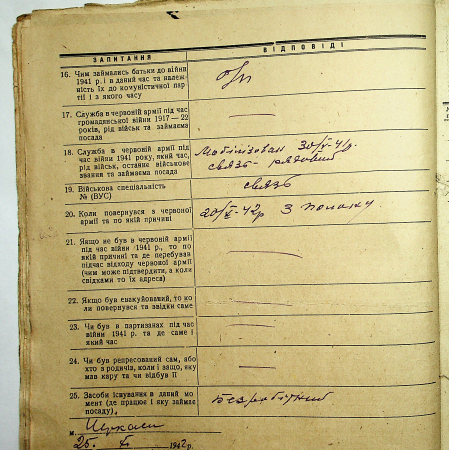 ЗАПИТАННЯ
ВІДПОВІДІ
16. Чим займались батьки до війни
1941 р. і в даний час та належ-
ність їх до комуністичної пар-
тії і з якого часу
17. Служба в червоній армії під час
громадянської війни 1917—22
років, рід військ та займаєма
посада
18. Служба в червоній армії під
час війни 1941 року, який час,
рід військ, останнє військове
звання та займаєма посада
Мобілізован
связь- рядовий
19. Військова спеціальність
№ (ВУС)
связь
20. Коли повернувся з червоної
армії та по якій причині
З полону.
21. Якщо не був в червоній армії
під час війни 1941 р., то по
якій причині та де перебував
підчас відходу червоної армії
(чим може підтвердити, а коли
свідками то їх адреса)
22. Якщо був евакуйований, то ко
ли повернувся та звідки саме
23. Чи був в партизанах під час
війни 1941 р. та де саме і
який час
24. Чи був репресований сам, або
хто з родичів, коли і защо, яку
мав кару та чи відбув її
25. Засоби існування в даний мо
мент (де працює і яку займає
посаду).
Безробітний
м. Черкаси
25. 1942 р.